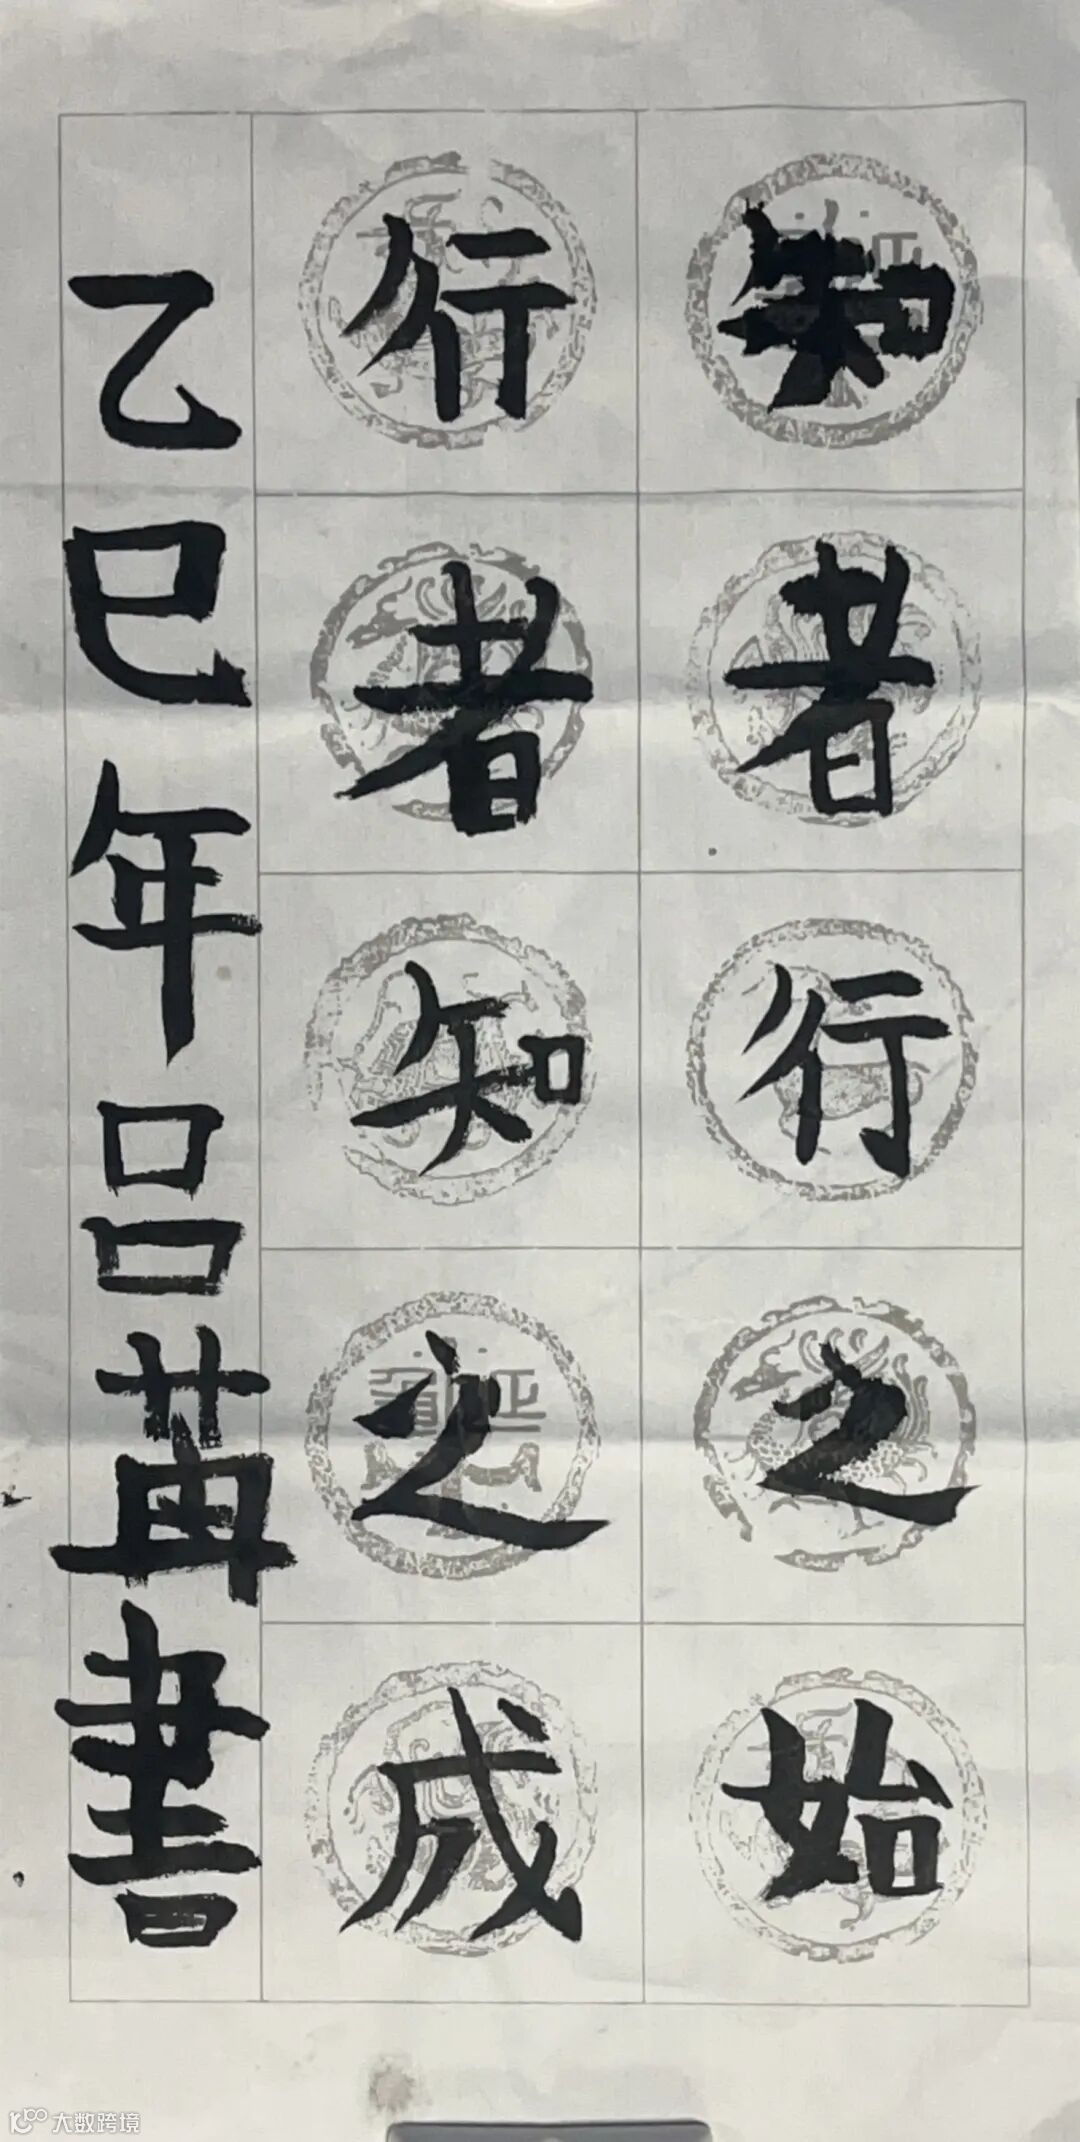 知者行之始
行者知之成
乙巳年吕苒書
大数跨境